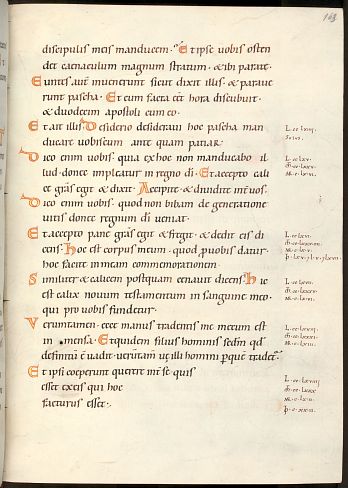 discipulis meis manducem. Et ipse uobis osten
det caenaculum magnum stratum. & ibi parate.
Euntes aut̄ inuenerunt sicut dixit illis. & paraue
runt pascha. Et cum facta eēt hora discubuit.
& duodecim apostoli cum eo.
Et ait illis. Desiderio desideraui hoc pascha man
ducare uobiscum ante quam patiar.
Dico enim uobis. quia ex hoc non manducabo il
lud. donec impleatur in regno dī. Et accepto cali
ce grās egit & dixit. Accipite & diuidite int̄ uos.
Dico enim uobis. quod non bibam de generatione
uitis donec regnum dī ueniat.
Et accepto pane grās egit & fregit. & dedit eis di
cens. Hoc est corpus meum. quod pro uobis datur.
hoc facite in meam commemorationem.
Similiter & calicem postquam cenauit dicens. Hic
est calix nouum testamentum in sanguine meo.
qui pro uobis fundetur.
Verumtamen. ecce manus tradentis me mecum est
in mensa. Et quidem filius hominis sedm̄ qd̄
definitū ē uadit. uerūtam̄ uę illi homini p̄ quē tradet̄.
Et ipsi coeperunt querere int̄ se quis
esset ex eis qui hoc
facturus esset.